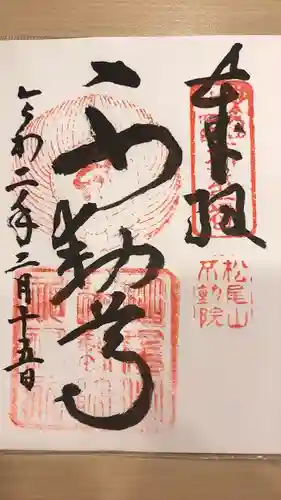 奉拝
不動尊
令和二年二月十五日
松尾山
不動院